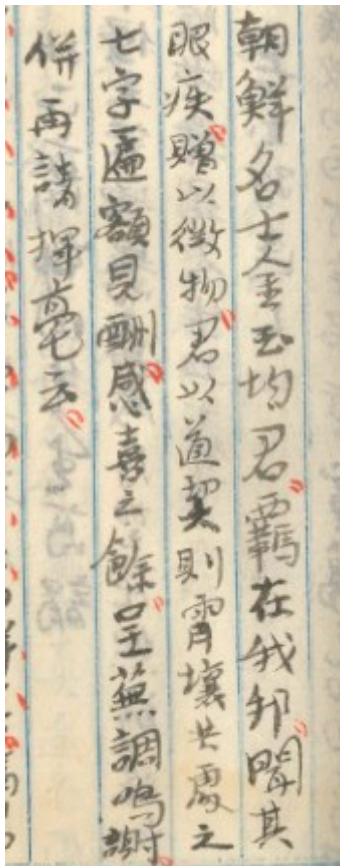 朝鮮名士金玉均君羈在我邦聞其
眼疾贈以微物君以道契則霄壤共處之
七字匾額見酬感喜之餘呈蕪調鳴謝
併再請揮毫云